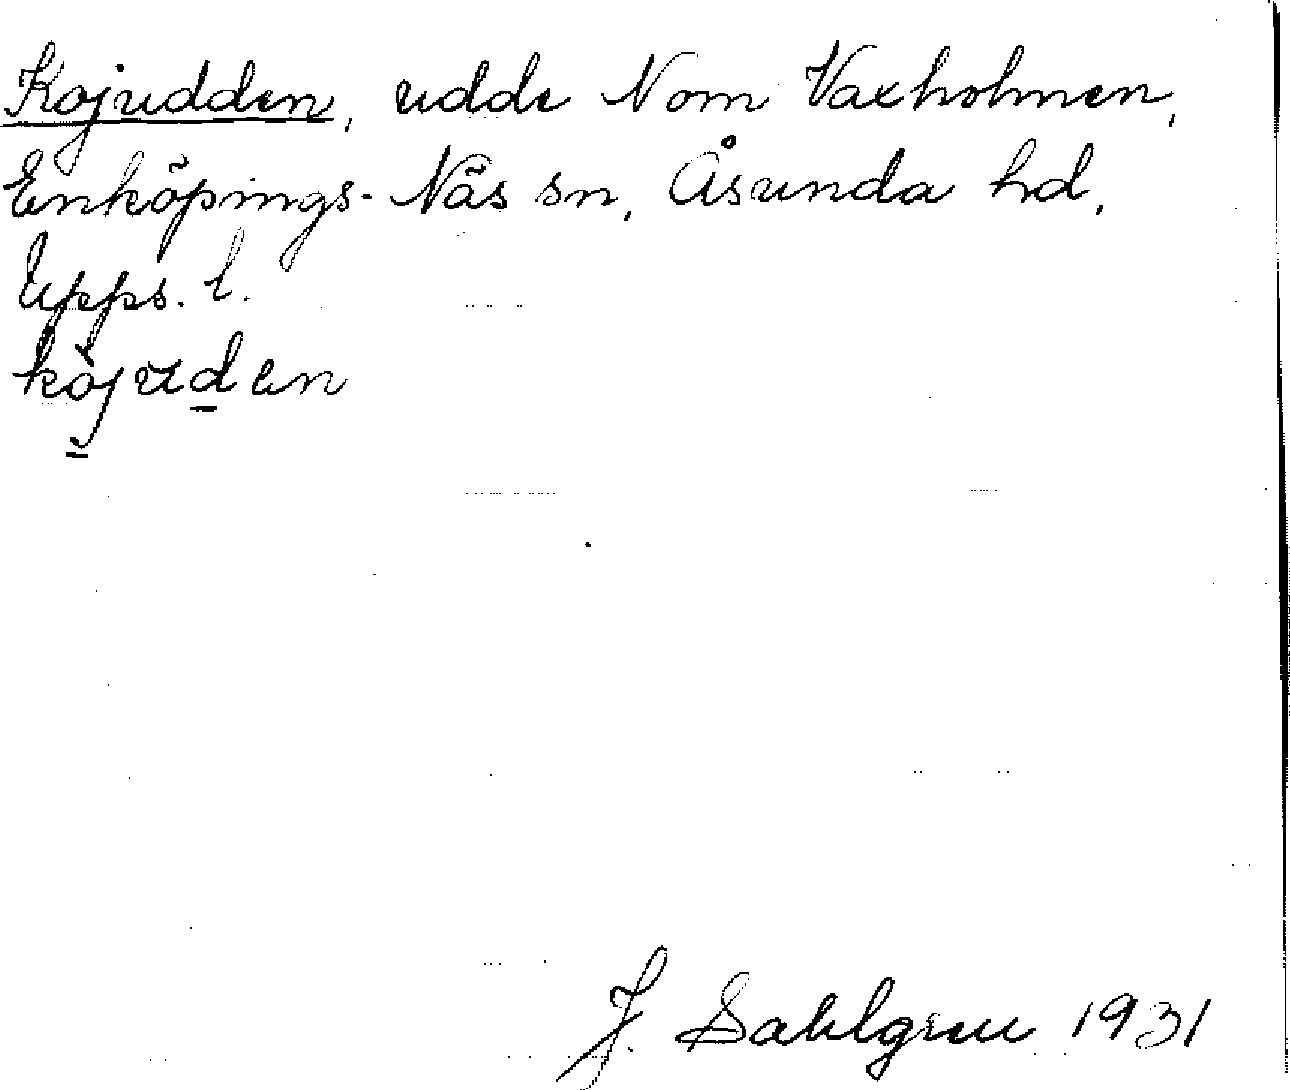 Kojudden, udde N om Vaxholmen,
Enköpings-Näs sn, Åsunda hd,
Upps. l.
kòjuden
J. Sahlgren 1931